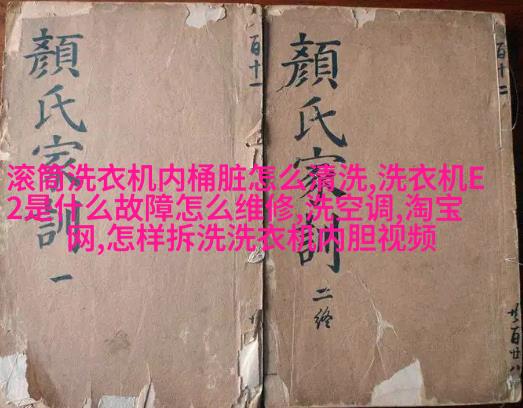 顏氏家訓
一
百十一
顏氏家訓
二終
百十二
滚筒洗衣机内桶脏怎么清洗,洗衣机E
2是什么故障怎么维修,洗空调,淘宝
网,怎样拆洗洗衣机内胆视频